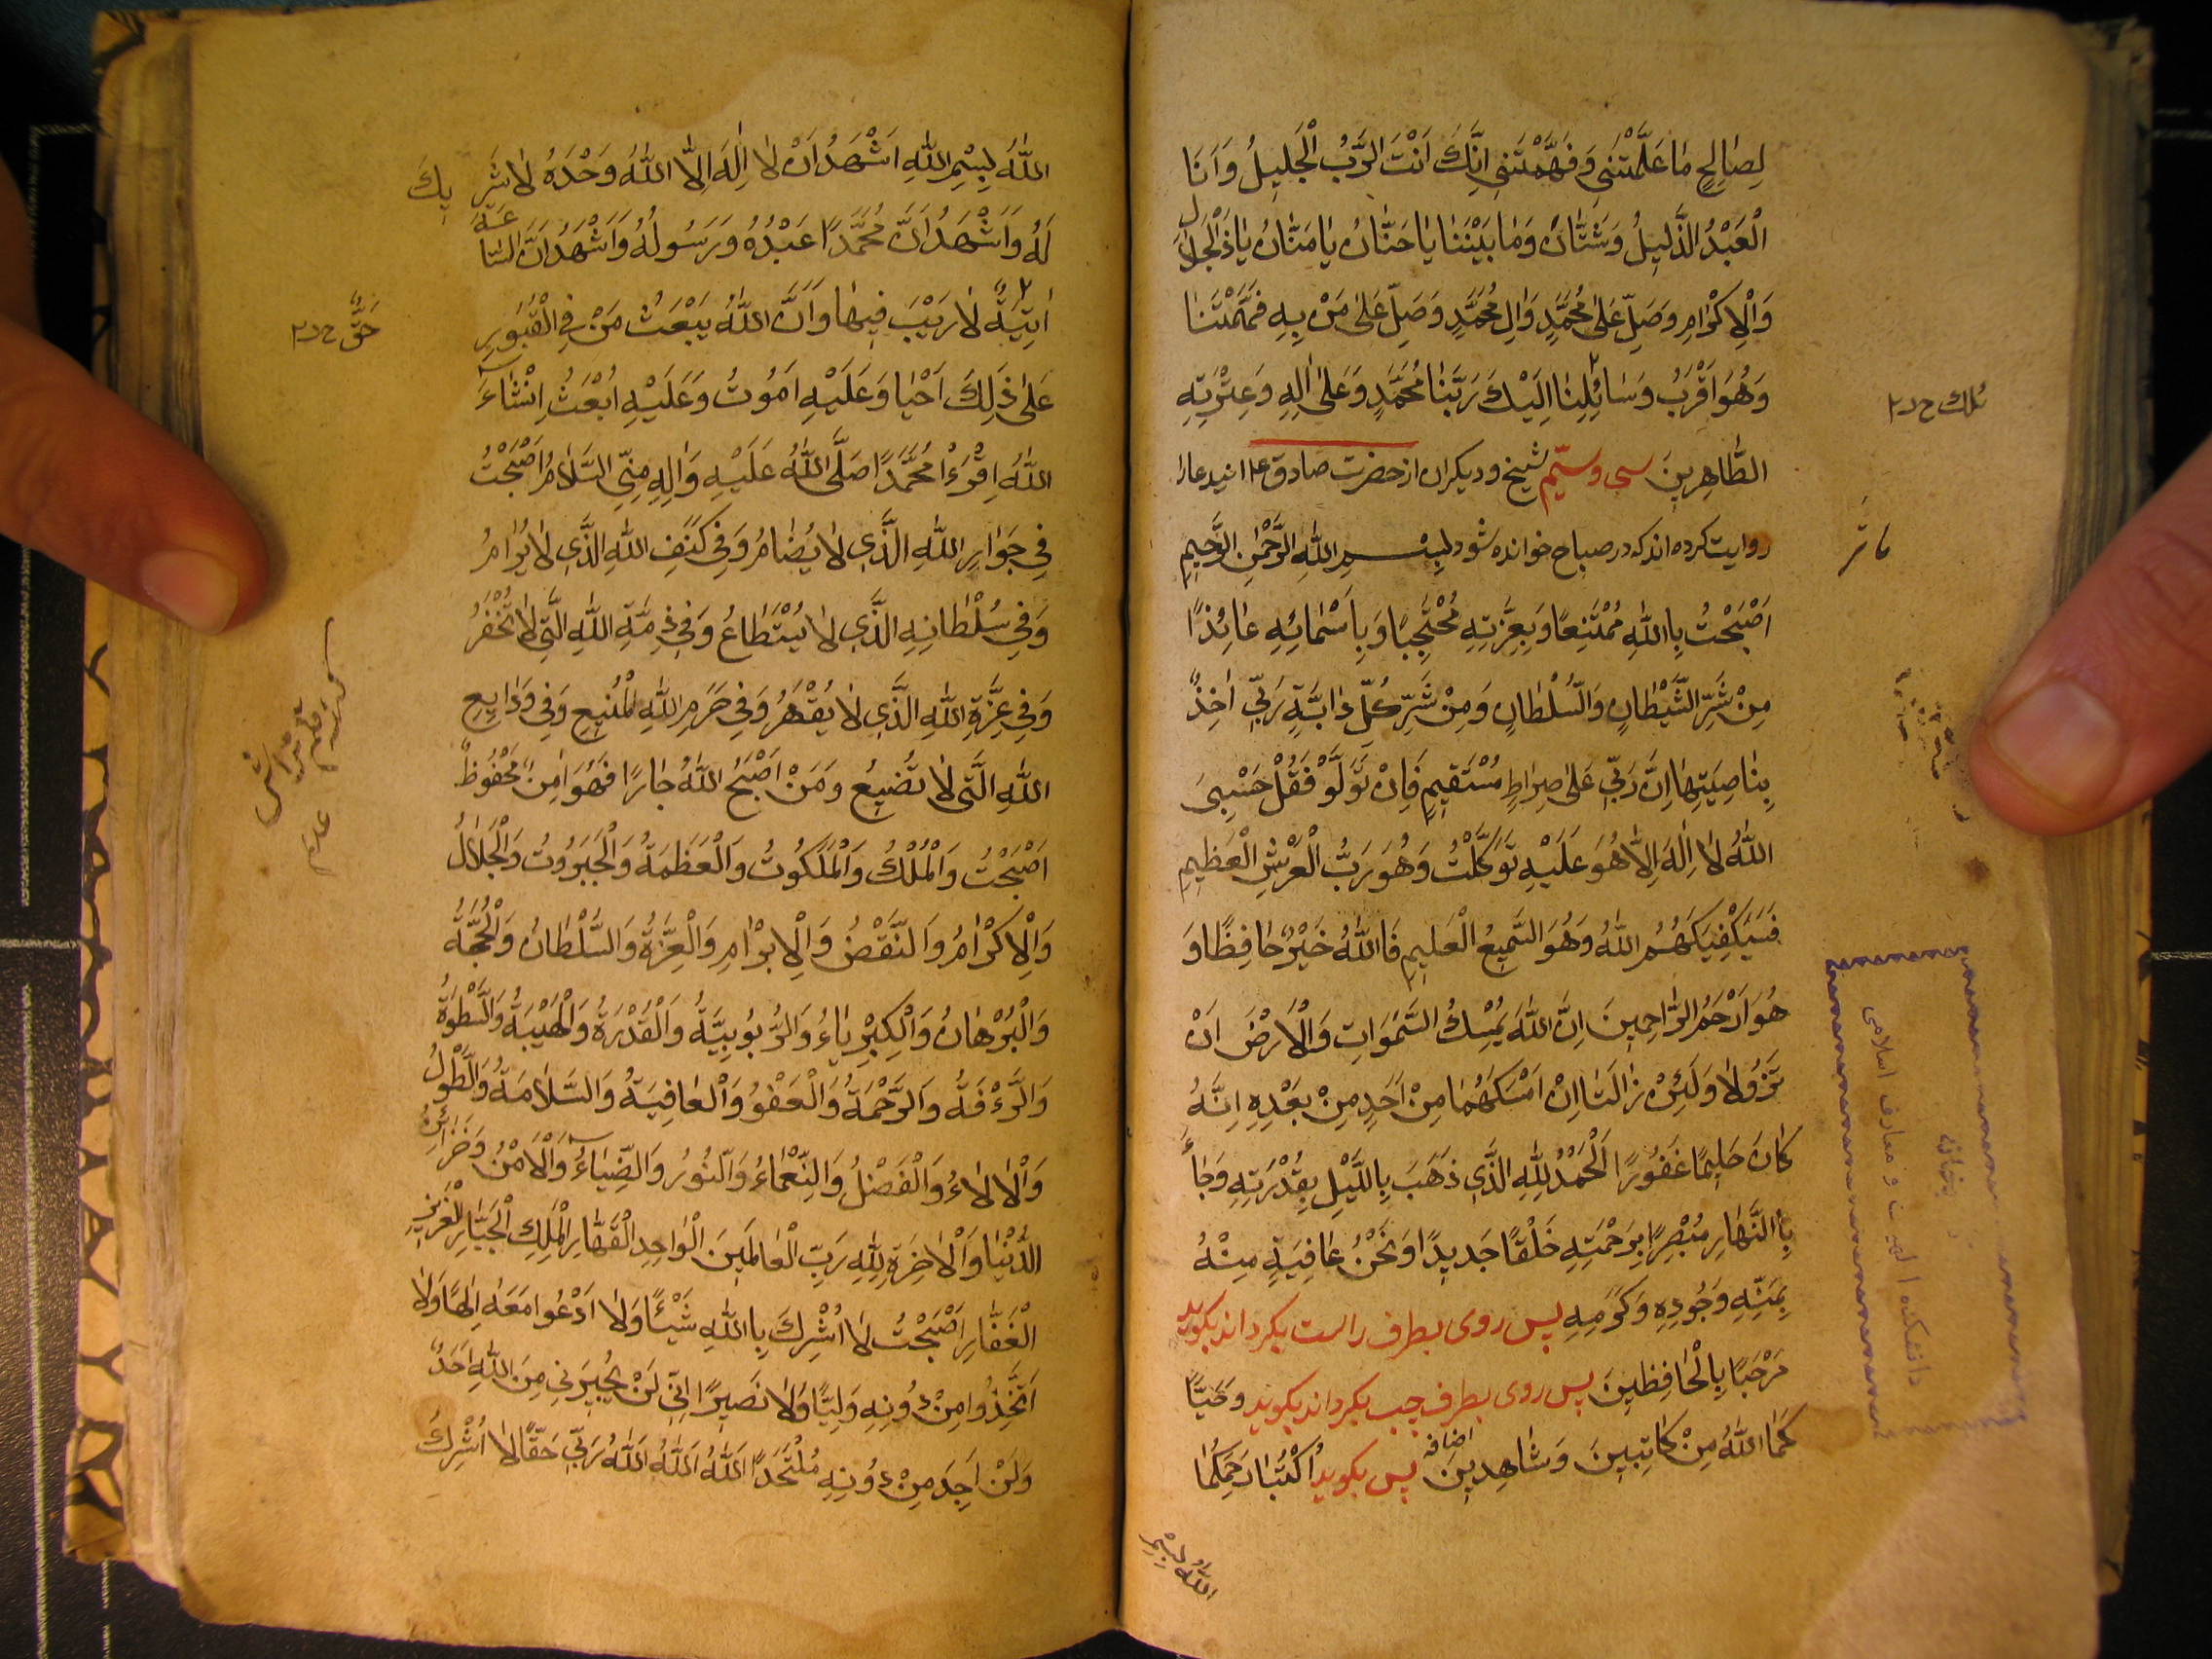 لِصٰالِحِ مٰا عَلَّمْتَنىٖ وَفَهَّمْتَنىٖ اِنَّكَ اَنْتَ الرَّبُّ الْجَليٖلُ وَاَنَا
الْعَبْدُ الذَّليٖلُ وَشَتّٰانَ وَمٰا بَيْنَنٰا يٰا حَنّٰانُ يٰا مَنّٰانُ يٰا ذَا الْجَلٰالِ
وَالْاِكْرٰامِ وَصَلِّ عَلىٰ مُحَمَّدٍ وَاٰلِ مُحَمَّدٍ وَصَلِّ عَلىٰ مَنْ بِهِ فَهَّمْتَنٰا
وَهُوَ اَقْرَبُ وَسٰائِلِنٰا اِلَيْكَ رَبَّنٰا مُحَمَّدٍ وَعَلىٰ اٰلِهِ وَعِتْرَتِهِ
الطّٰاهِريٖنَ سى وسيّم شيخ و ديكران از حضرت صادق ع اين دعارا
روايت كرده اند كه در صباح خوانده شود بِسْمِ اللهِ الرَّحْمٰنِ الرَّحيٖمِ
اَصْبَحْتُ بِاللهِ مُمْتَنِعًا وَبِعِزَّتِهِ مُحْتَجِبًا وَبِاَسْمٰائِهِ عٰائِذًا
مِنْ شَرِّ الشَّيْطٰانِ وَالسُّلْطٰانِ وَمِنْ شَرِّ كُلِّ دٰابَّةٍ رَبّيٖ اٰخِذٌ
بِنٰاصِيَتِهٰا اِنَّ رَبّيٖ عَلىٰ صِرٰاطٍ مُسْتَقيٖمٍ فَاِنْ تَوَلَّوْ فَقُلْ حَسْبِىَ
اللهُ لٰا اِلٰهَ اِلّٰا هُوَ عَلَيْهِ تَوَكَّلْتُ وَهُوَ رَبُّ الْعَرْشِ الْعَظيٖمِ
فَسَيَكْفيٖكَهُمُ اللهُ وَهُوَ السَّميٖعُ الْعَليٖمِ فَاللهُ خَيْرٌ حٰافِظًا وَ
هُوَ اَرْحَمُ الرّٰاحِميٖنَ اِنَّ اللهَ يُمْسِكُ السَّمٰوَاتِ وَالْاَرْضَ اَنْ
تَزُولٰا وَلَئِنْ زٰالَتٰا اِنْ اَمْسَكَهُمٰا مِنْ اَحَدٍ مِنْ بَعْدِهِ اِنَّهُ
كٰانَ حَليٖمًا غَفُورًا اَلْحَمْدُ لِلّٰهِ الَّذيٖ ذَهَبَ بِاللَّيْلِ بِقُدْرَتِهِ وَجٰاءَ
بِالنَّهٰارِ مُبْصِرًا بِرَحْمَتِهِ خَلْقًا جَديٖدًا وَنَحْنُ عٰافِيَةٍ مِنْهُ
بِمَنِّهِ وَجُودِهِ وَكَرَمِهِ پس روى بطرف راست بكرداند بكويد
مَرْحَبًا بِالْحٰافِظيٖنَ پس روى بطرف چپ بكرداند بكويد وَحَيّٰا
كُمَا اللهُ مِنْ كٰاتِبيٖنَ وَشٰاهِديٖنَ اضافه پس بكويد اُكْتُبٰا رَحِمَكُمَا
اللهُ بِسْمِ
ملك ح د٢
ماثر
دانشكده الهيات و معارف اسلامى
اللهُ بِسْمِ اللهِ اَشْهَدُ اَنْ لٰا اِلٰهَ اِلَّا اللهُ وَحْدَهُ لٰا شَريٖكَ
لَهُ وَاَشْهَدُ اَنَّ مُحَمَّدًا عَبْدُهُ وَرَسُولُهُ وَاَشْهَدُ اَنَّ السّٰاعَةَ
اٰتِيَةٌ لٰا رَيْبَ فيٖهٰا وَاَنَّ اللهَ يَبْعَثُ مَنْ فِي الْقُبُورِ
حَقٌّ ح د٢
عَلىٰ ذٰلِكَ اَحْيٰا وَعَلَيْهِ اَمُوتُ وَعَلَيْهِ اُبْعَثُ اِنْشٰاءَ
اللهُ اِقْرَءٰا مُحَمَّدًا صَلَّى اللهُ عَلَيْهِ وَاٰلِهِ مِنِّى السَّلٰامُ اَصْبَحْتُ
فيٖ جَوٰارِ اللهِ الَّذيٖ لٰا يُضٰامُ وَفيٖ كَنَفِ اللهِ الَّذيٖ لٰا يُرٰامُ
وَفيٖ سُلْطٰانِهِ الَّذيٖ لٰا يُسْتَطٰاعُ وَفيٖ ذِمَّةِ اللهِ الَّتيٖ لٰا تُخْفَرُ
وَفيٖ عِزَّةِ اللهِ الَّذيٖ لٰا يُقْهَرُ وَفيٖ حَرَمِ اللهِ الْمَنيٖعِ وَفيٖ وَدٰايِعِ
اللهِ الَّتيٖ لٰا تَضيٖعُ وَمَنْ اَصْبَحَ اللهُ جٰارًا فَهُوَ اٰمِنٌ مَحْفُوظٌ
اَصْبَحْتُ وَالْمُلْكُ وَالْمَلَكُوتُ وَالْعَظَمَةُ وَالْجَبَرُوتُ وَالْجَلٰالُ
وَالْاِكْرٰامُ وَالنَّقْضُ وَالْاِبْرٰامِ وَالْعِزَّةُ وَالسُّلْطٰانُ وَالْحُجَّةُ
وَالْبُرْهٰانُ وَالْكِبْرِيٰاءُ وَالرُّبُوبِيَّةُ وَالْقُدْرَةُ وَالْهَيْبَةُ وَالسَّطْوَةُ
وَالرَّءْفَةُ وَالرَّحْمَةُ وَالْعَفْوُ وَالْعٰافِيَةُ وَالسَّلٰامَةُ وَالطَّوْلُ
وَالْاٰلٰاءُ وَالْفَضْلُ وَالنِّعْمٰاءُ وَالنُّورُ وَالضِّيٰاءُ وَالْاَمْنُ وَخَزٰائِنُ
الدُّنْيٰا وَالْاٰخِرَةِ لِلّٰهِ رَبِّ الْعٰالَميٖنَ الْوٰاحِدِ الْقَهّٰارِ الْمَلِكِ الْجَبّٰارِ الْعَزيٖزِ
الْغَفّٰارِ اَصْبَحْتُ لٰا اُشْرِكُ بِاللهِ شَيْئًا وَلٰا اَدْعُوا مَعَهُ اِلٰهًا وَلٰا
اَتَّخِذُوا مِنْ دُونِهِ وَلِيًّا وَلٰا نَصيٖرًا اِنّيٖ لَنْ يُجيٖرَنيٖ مِنَ اللهِ اَحَدٌ
وَلَنْ اَجِدَ مِنْ دُونِهِ مُلْتَحَدًا اَللهُ اَللهُ اَللهُ رَبّيٖ حَقًّا لٰا اُشْرِكُ